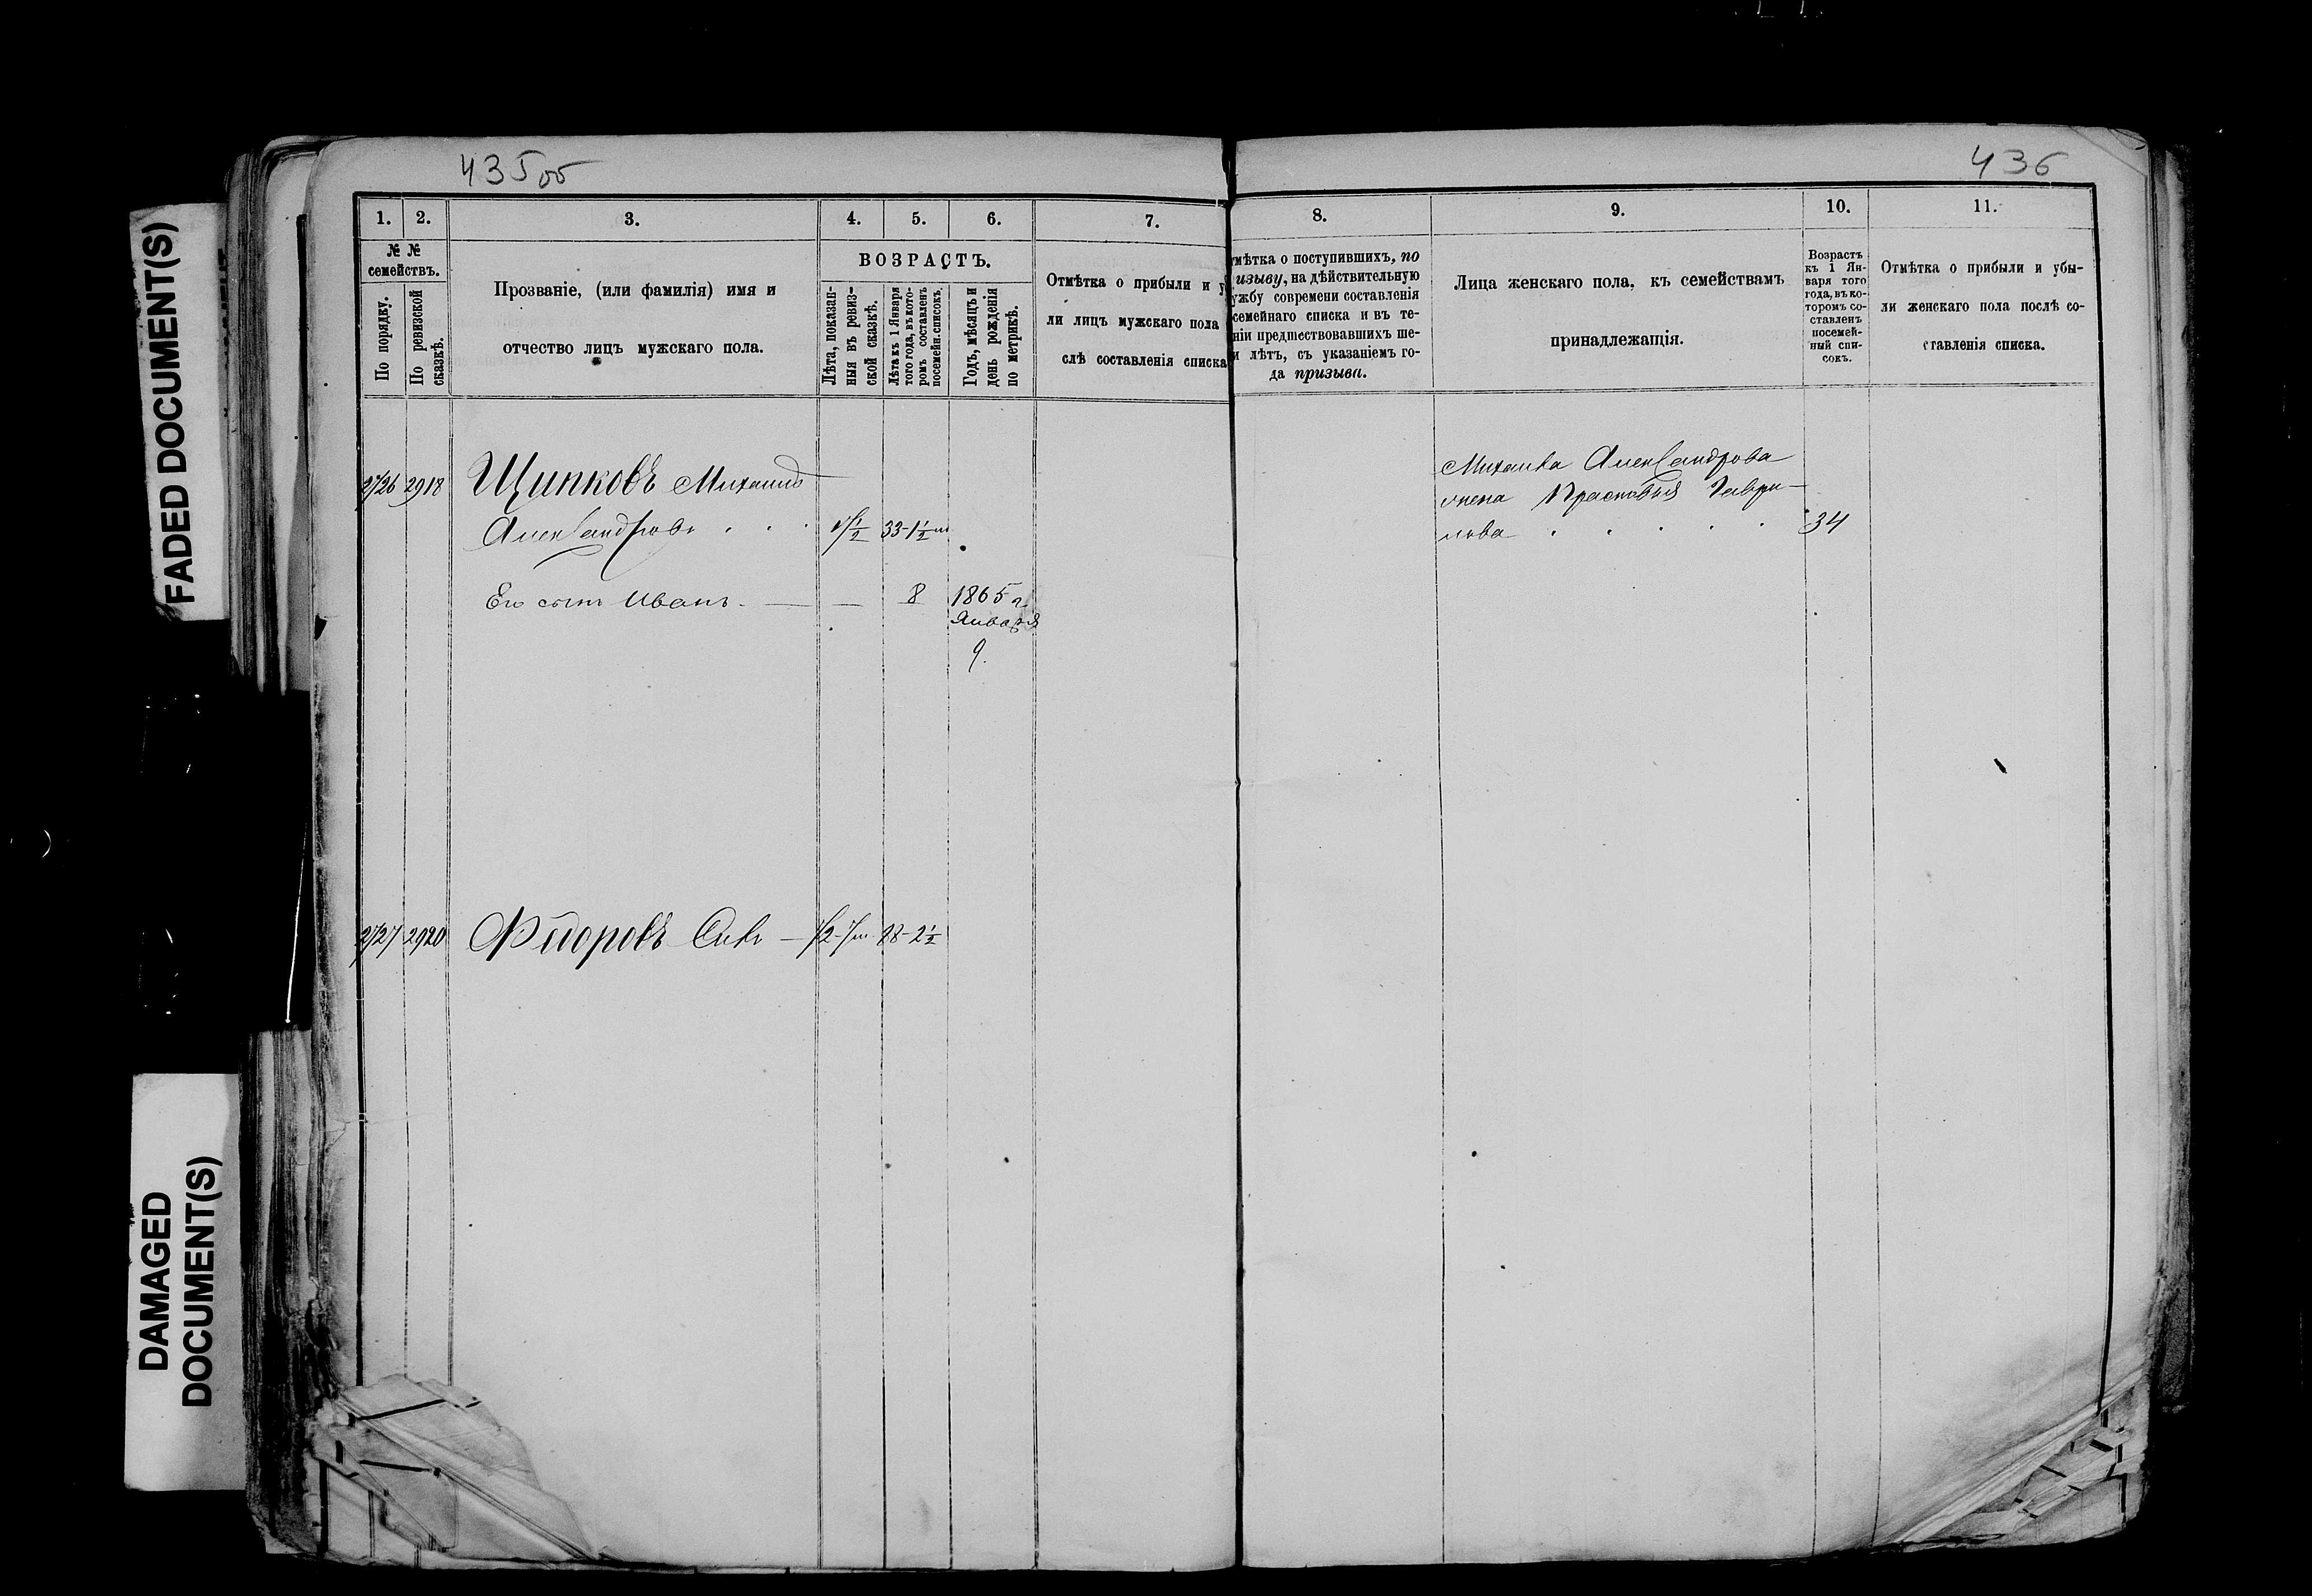 FADED DOCUMENT(S)
DAMAGED
DOCUMENT(S)
435 об
436
1. 2. 3. 4. 5. 6. 7.
№ №
семействъ.
По порядку.
По ревизской
сказкѣ.
Прозваніе, (или фамилія) имя и
отчество лицъ мужскаго пола.
ВОЗРАСТЪ.
Лѣта, показан-
ныя въ ревиз-
ской сказкѣ.
Лѣта къ 1 Января
того года, въ кото-
ромъ составленъ
посемейн. списокъ.
Годъ, мѣсяцъ и
день рожденія
по метрикѣ.
Отмѣтка о прибыли и у
ли лицъ мужскаго пола
слѣ составленія списка
8. 9. 10. 11.
мѣтка о поступившихъ, по
изыву, на дѣйствительную
ужбу современи составленія
семейнаго списка и въ те-
ніи предшествовавшихъ ше-
и лѣтъ, съ указаніемъ го-
да призыва.
Лица женскаго пола, къ семействамъ
принадлежащія.
Возрастъ
къ 1 Ян-
варя того
года, въ ко-
торомъ со-
ставленъ
посемей-
ный спи-
сокъ.
Отмѣтка о прибыли и убы-
ли женскаго пола послѣ со-
ставленія списка.
2726 2918 Щипковъ Михаилъ
Александровъ 33-1½ м
Его сынъ Иванъ. — — 8 1865 г.
Января
9.
Михаила Александрова
жена Прасковья Гаври-
лова 34
2727 2920 Ѳедоровъ